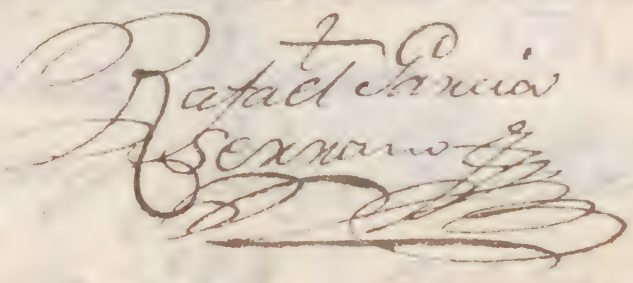 Rafael Garcia
Serrano